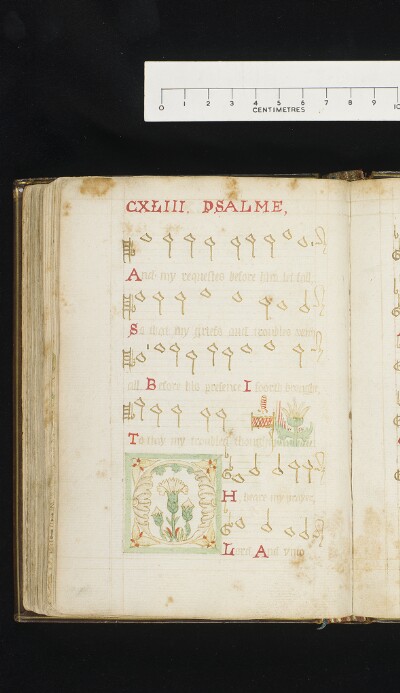 0 1 2 3 4 5 6 7 8 9 10
CENTIMETRES
CXLIII. PSALME,
And my requestes before him let fall,
So that my griefe and troubles
all. Before his presence I foorth brought,
To him my troubles
H hears my praier,
Lord And vnto